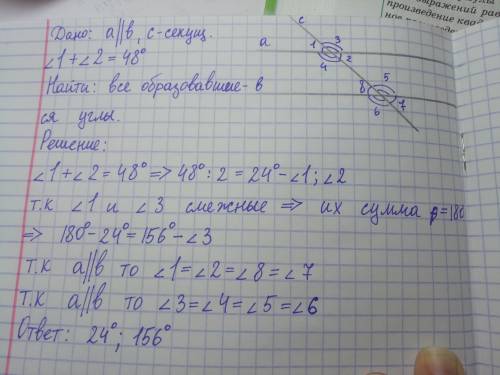 Дано: a∥b, c-секущ.
∠1+∠2=48°
Найти: все образовавшие-
ся углы.
Решение:
∠1+∠2=48° => 48°:2=24°-∠1;∠2
т.к ∠1 и ∠3 смежные => их сумма =180
=> 180°-24°=156°-∠3
Т.К a∥b то ∠1=∠2=∠8=∠7
Т.К a∥b то ∠3=∠4=∠5=∠6
Ответ: 24°; 156°
c
a
1 3
4 2
в
8 5
6 7
выражений рав
произведение квад